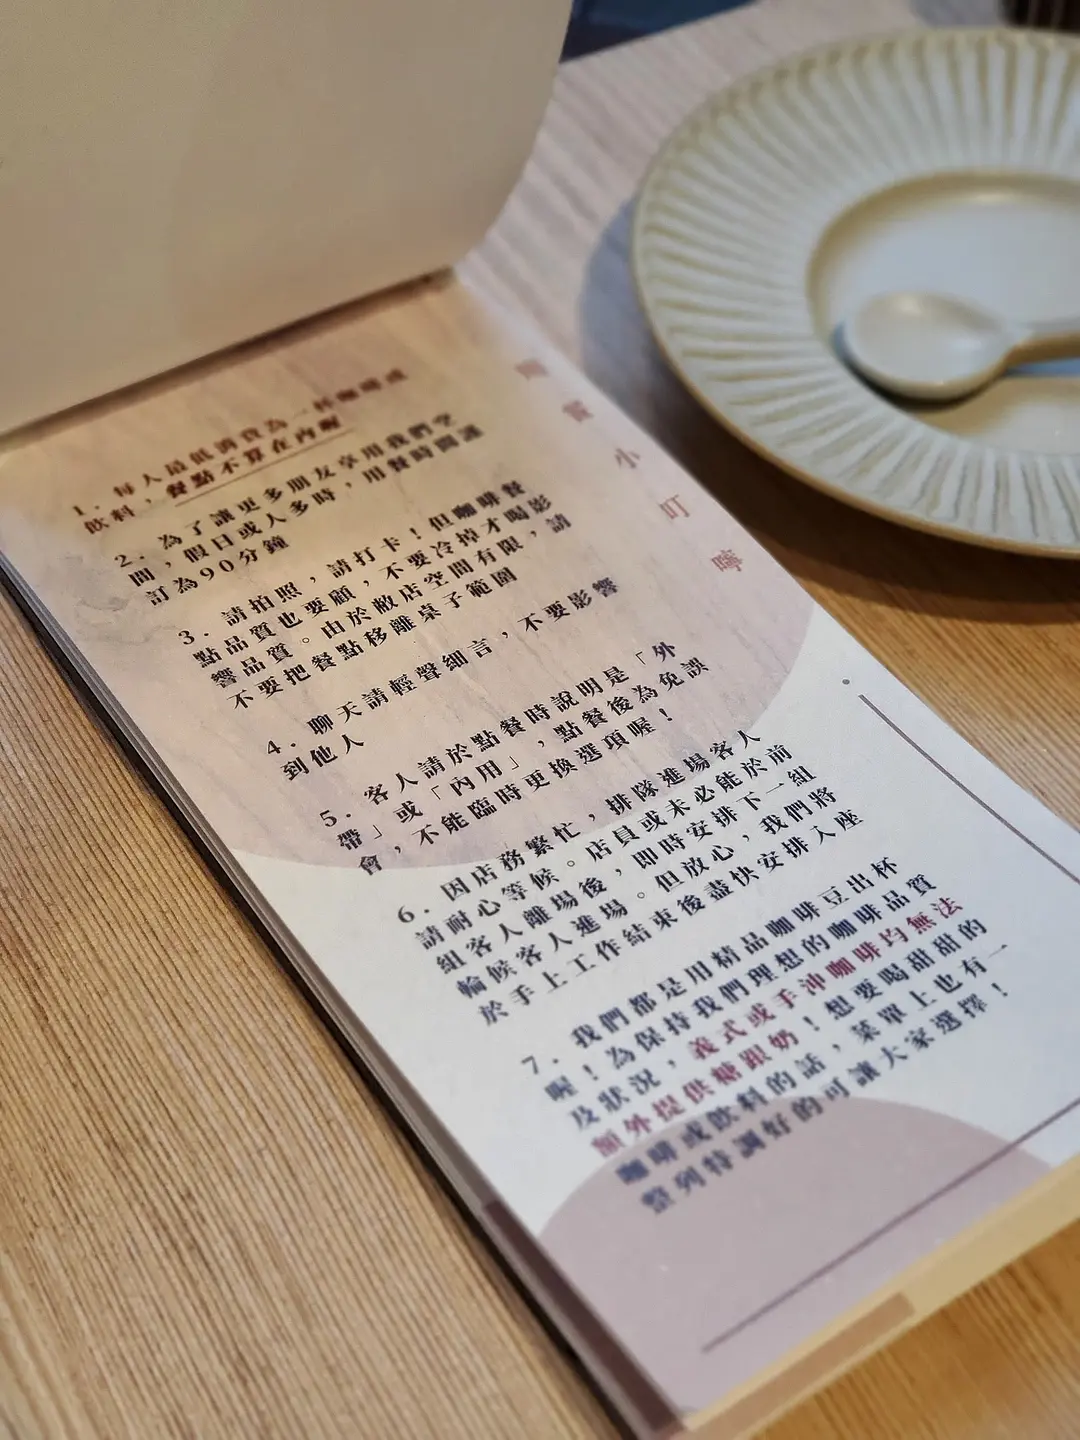 1. 每人最低消費為一杯咖啡或
飲料，餐點不算在內喔
2. 為了讓更多朋友享用我們空
間，假日或人多時，用餐時間謹
訂為90分鐘
3. 請拍照，請打卡！但咖啡餐
點品質也要顧，不要冷掉才喝影
響品質。由於敝店空間有限，請
不要把餐點移離桌子範圍
4. 聊天請輕聲細言，不要影響
到他人
5. 客人請於點餐時說明是「外
帶」或「內用」，點餐後為免誤
會，不能臨時更換選項喔！
6. 因店務繁忙，排隊進場客人
請耐心等候。店員或未必能於前
組客人離場後，即時安排下一組
輪候客人進場。但放心，我們將
於手上工作結束後盡快安排入座
7. 我們都是用精品咖啡豆出杯
喔！為保持我們理想的咖啡品質
及狀況，義式或手沖咖啡均無法
額外提供糖跟奶！想要喝甜甜的
咖啡或飲料的話，菜單上也有一
整列特調好的可讓大家選擇！
實小叮嚀